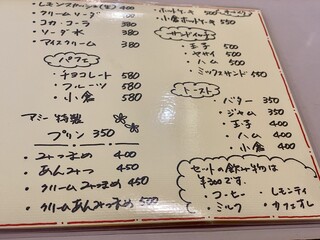 レモンスカッシュ(生) 400
クリームソーダ
コカ・コーラ 380
ソーダ水 380
アイスクリーム 380
パフェ
チョコレート 580
フルーツ 580
小倉 580
アミー特製
プリン 350
みつまめ 400
あんみつ 450
クリームみつまめ 450
クリームあんみつまめ 500
ホットケーキ 500
小倉ホットケーキ 550
サンドイッチ
玉子 500
ヤサイ 500
ハム 500
ミックスサンド 550
トースト
バター 350
ジャム 350
玉子 400
ハム 400
小倉 400
セットの飲み物は
¥300です。
・コーヒー ・レモンティ
・ミルク ・カフェオレ